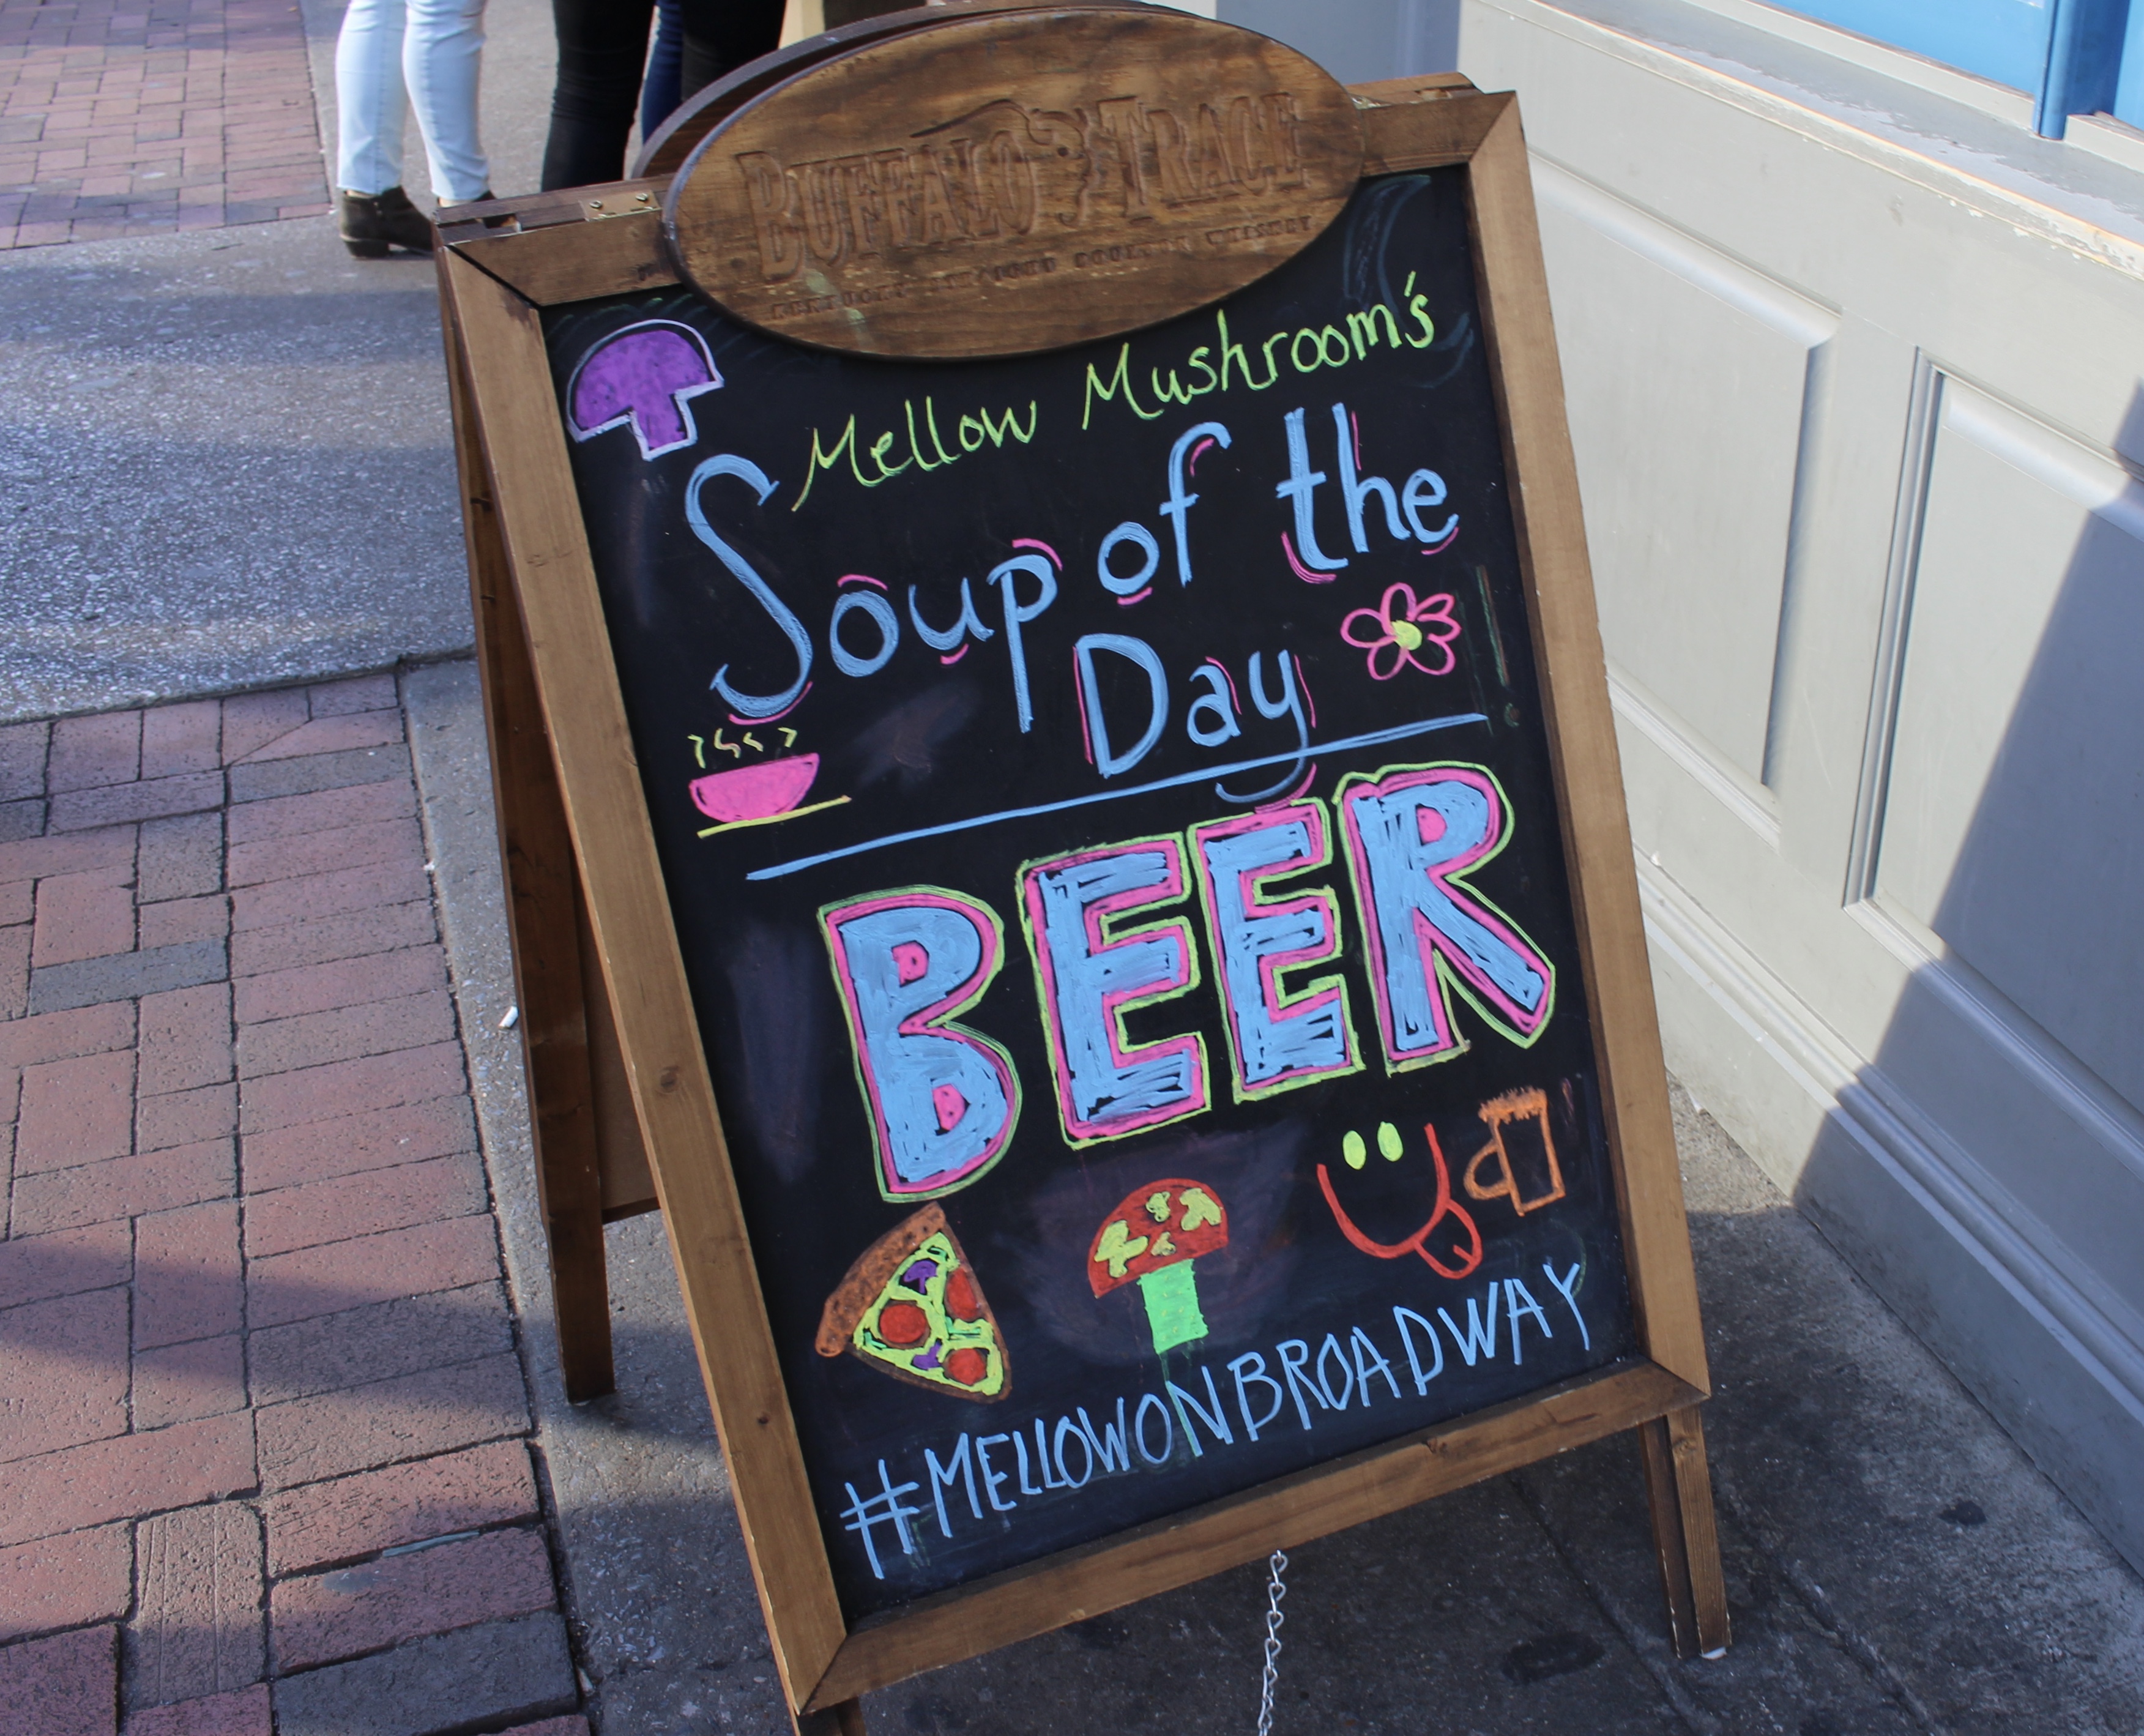 BUFFALO TRACE
KENTUCKY STRAIGHT BOURBON WHISKEY
Mellow Mushroom's
Soup of the
Day
BEER
#MELLOWONBROADWAY